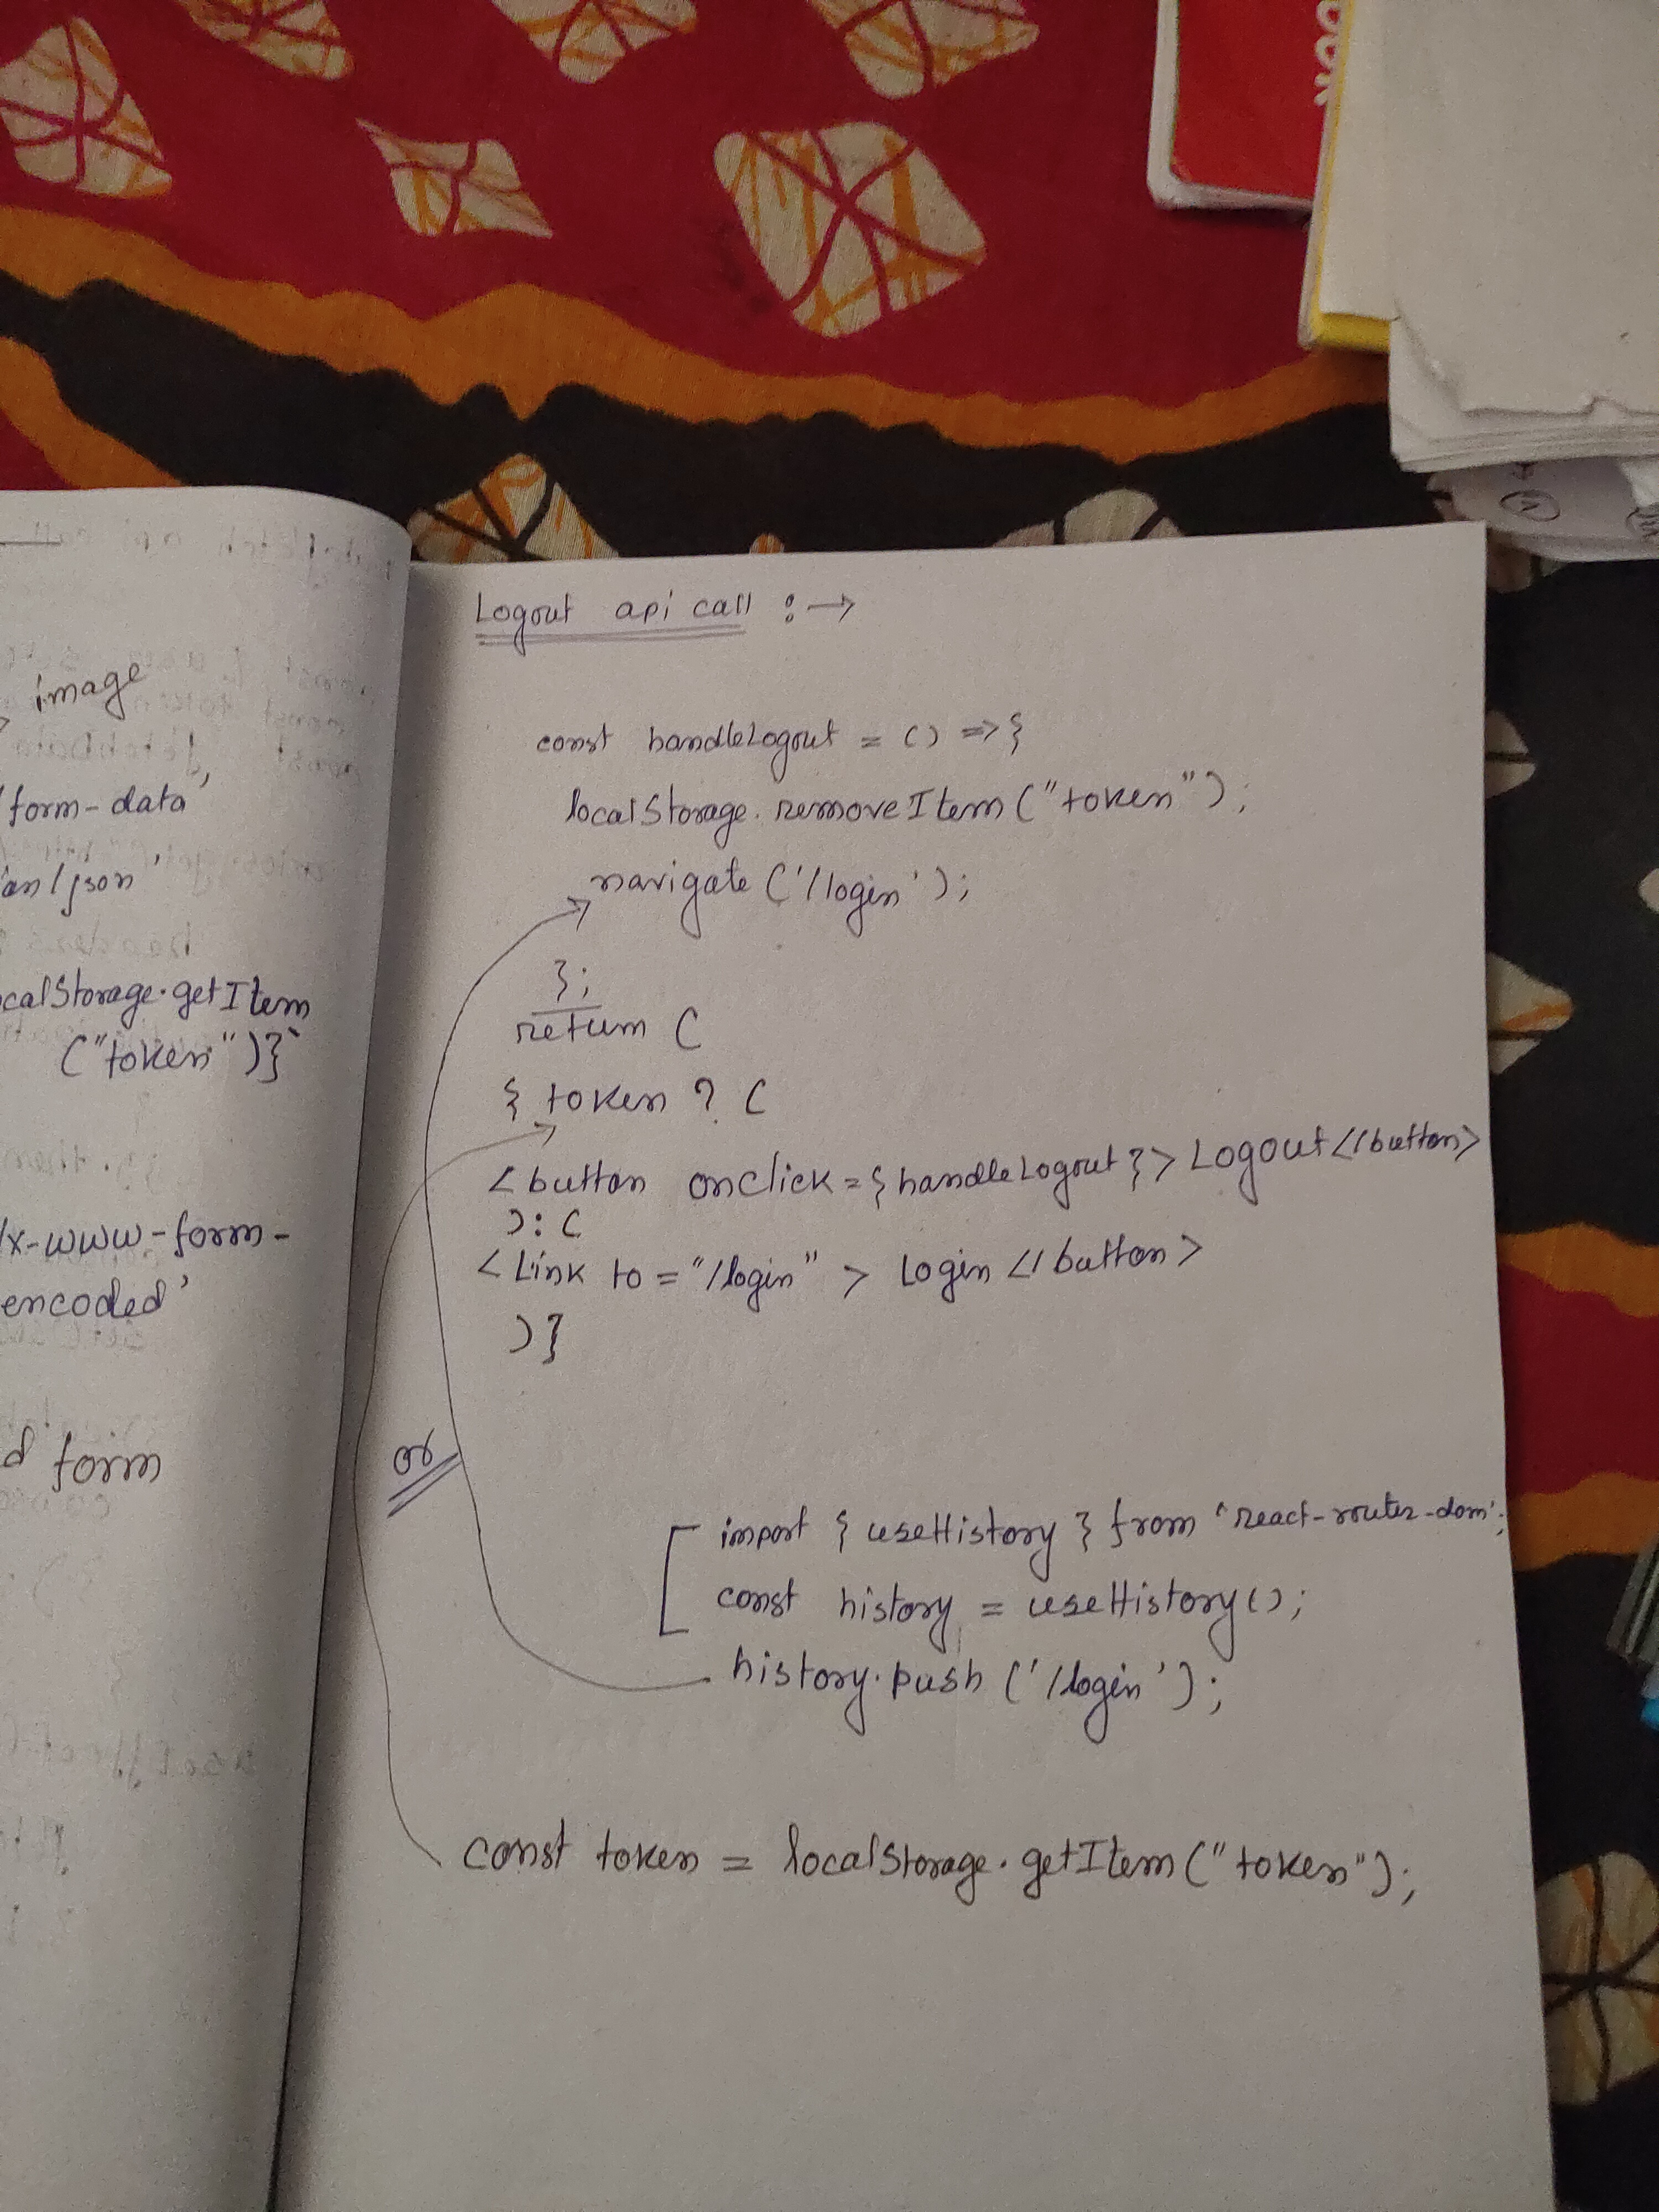 image
form-data'
an/json'
calStorage.getItem
("token")}`
/x-www-form-
encoded'
d form
Logout api call :→
const handleLogout = () => {
localStorage.removeItem("token");
navigate('/login');
};
return (
{ token ? (
<button onclick={handleLogout}> Logout</button>
): (
<Link to="/login" > Login </button>
)}
or
import { useHistory } from 'react-router-dom';
const history = useHistory();
history.push('/login');
const token = localStorage.getItem("token");